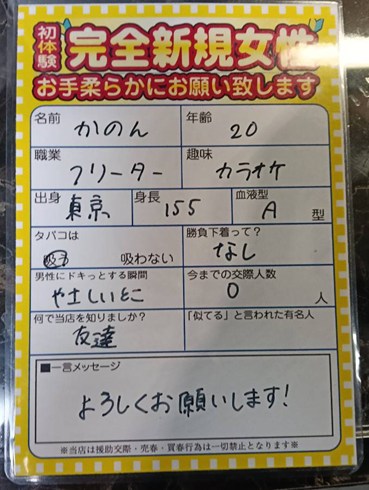 初体験 完全新規女性
お手柔らかにお願い致します
名前 かのん 年齢 20
職業 フリーター 趣味 カラオケ
出身 東京 身長 155 血液型 A 型
タバコは 吸う 吸わない 勝負下着って? なし
男性にドキっとする瞬間 やさしいとこ 今までの交際人数 0 人
何で当店を知りましたか? 友達 「似てる」と言われた有名人
■一言メッセージ
よろしくお願いします!
※当店は援助交際・売春・買春行為は一切禁止となります※